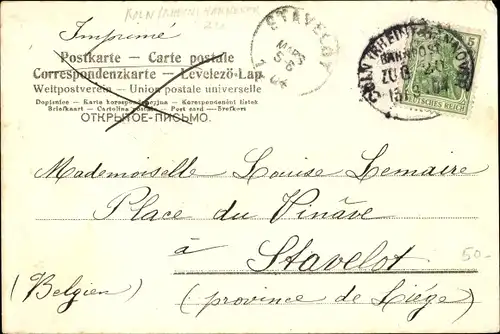 KÖLN (RHEIN) HANNOVER
Imprimé
Postkarte — Carte postale
Correspondenzkarte — Levelező-Lap
Weltpostverein — Union postale universelle
Dopisnice — Karta korespondencyjna — Korespondenční lístek
Briefkaart — Cartolina postale — Post card — Brefkort
ОТКРЫТОЕ-ПИСЬМО.
STAVELOT
MARS
04
CÖLN (RHEIN) HANNOVER
BAHNPOST
ZUG
5
DEUTSCHES REICH
Mademoiselle Louise Lemaire
Place du Vinâve
à
Stavelot
50-
(Belgien)
(province de Liége)